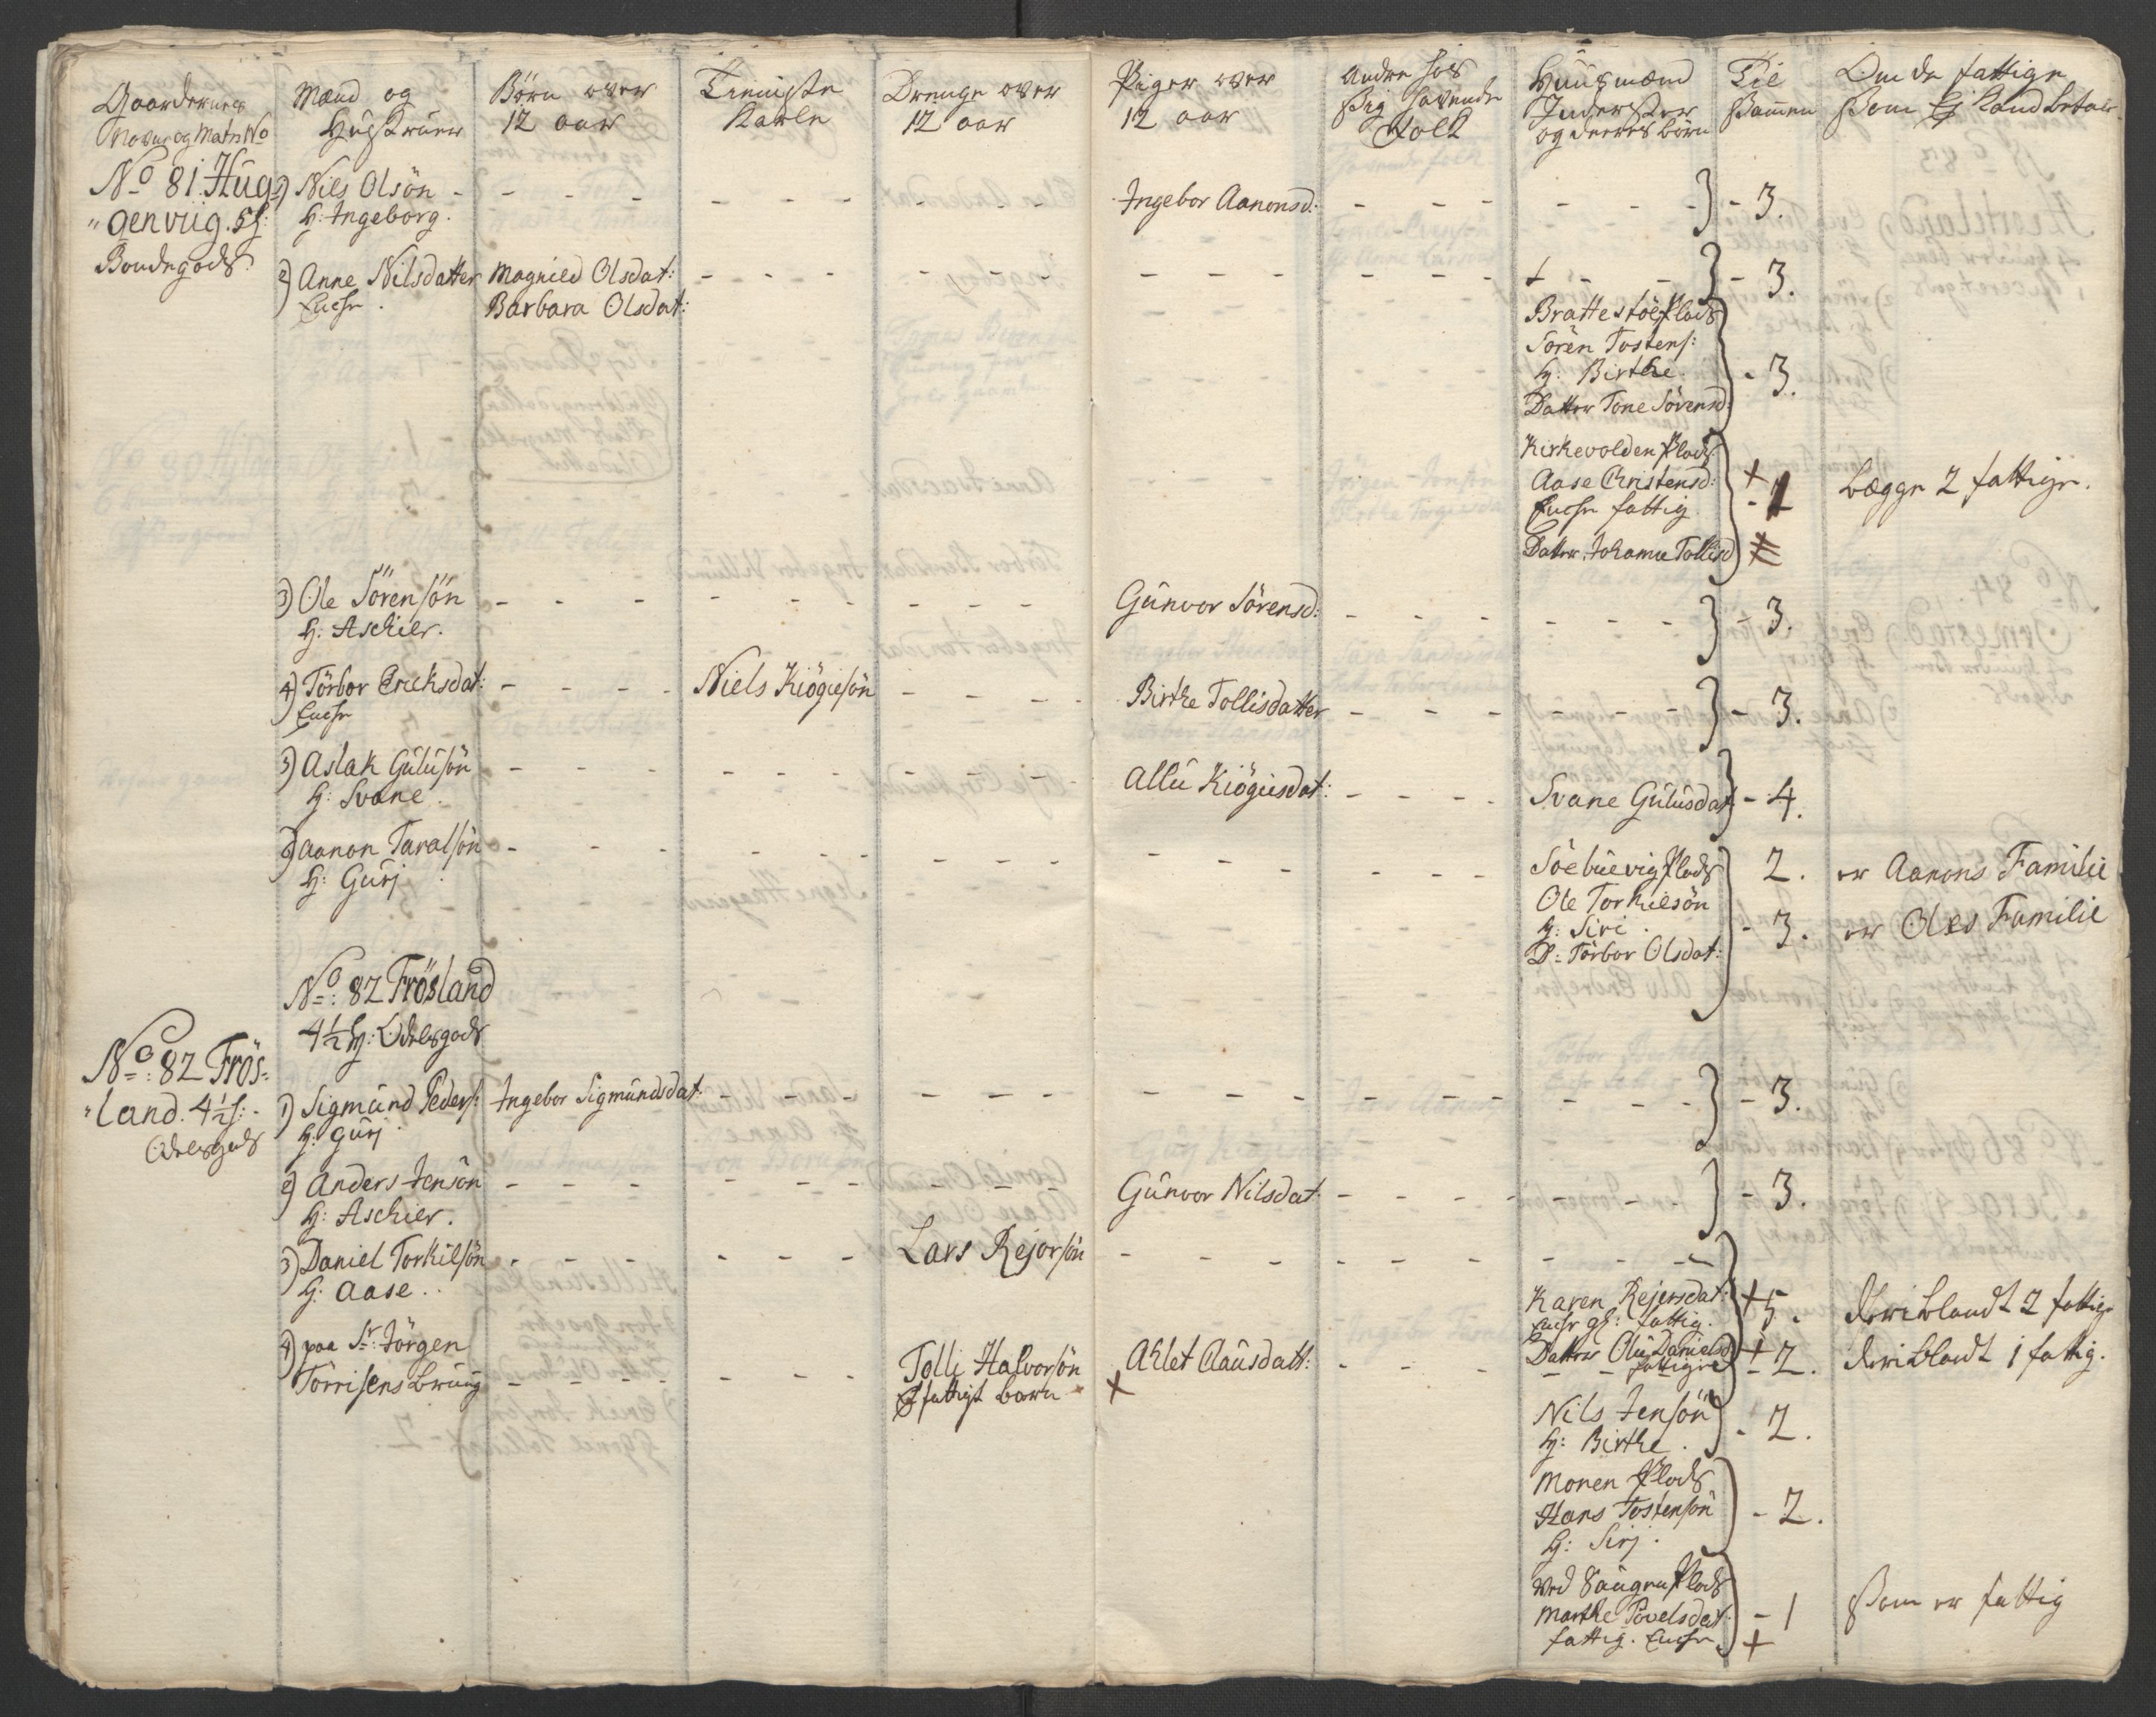 Gaardernes Navne og Matr: No
Mænd og Hustruer
Børn over 12 aar
Tieniste Karle
Drenge over 12 aar
Piger over 12 aar
Andre hos sig havende Folk
Huusmænd Inderster og deres børn
Til sammen
Om de fattige som Ej kand betale
No 81. Hug-
"genviig. 5 h:
Bondegods
1) Nils Olsön
H: Ingeborg.
Ingebor Aanonsd:
- 3.
2) Anne Nilsdatter
Encke.
Magnild Olsdat:
Barbara Olsdat:
- 3.
Brattestöe Plads
Sören Tostens:
H: Birthe.
Datter Tone Sörensd:
- 3.
Kirkevolden Plads
Aase Christensd:
Encke fattig
Datter Johanne Tollisd
bægge 2 fattige.
3) Ole Sörensön
H: Aschier.
Gunvor Sörensd:
- 3.
4) Törbor Ericksdat:
Encke
Niels Kiögiesön
Birthe Tollisdatter
- 3.
5) Aslak Gulusön
H: Svane.
Allu Kiögiesdat:
Svane Gulusdat
- 4.
6) Aanon Taralsön
H: Gurj
Söebuevig Plads
Ole Torkielsön
H: Siri.
D: Törbor Olsdat:
2. er Aanons Familie
- 3. er Oles Familie
No: 82 Frösland
4½ h: Odelsgods
No: 82 Frös-
"land. 4½ h:
Odelsgods
1) Sigmund Peders:
H: Gurj
Ingebor Sigmundsdat:
- 3.
2) Anders Jensön
H: Aschier.
Gunvor Nilsdat:
- 3.
3) Daniel Torkilsön
H: Aase.
Lars Rejorsön
Karen Rejersdat:
Encke gl: fattig.
Datter Olu Danielsd
fattige
+ 5. deriblandt 2 fattige
4) paa Sr: Jörgen
Törrisens bruug
Tolli Halvorsön
fattigt barn
Ahlet Clausdatt:
+
+ 2. deriblandt 1 fattig.
Nils Jensön
H: Birthe.
- 2.
Monen Plads
Hans Tostensön
H: Sirj.
- 2.
Marthe Povelsdat:
fattig. Encke
- 1
+
som er fattig